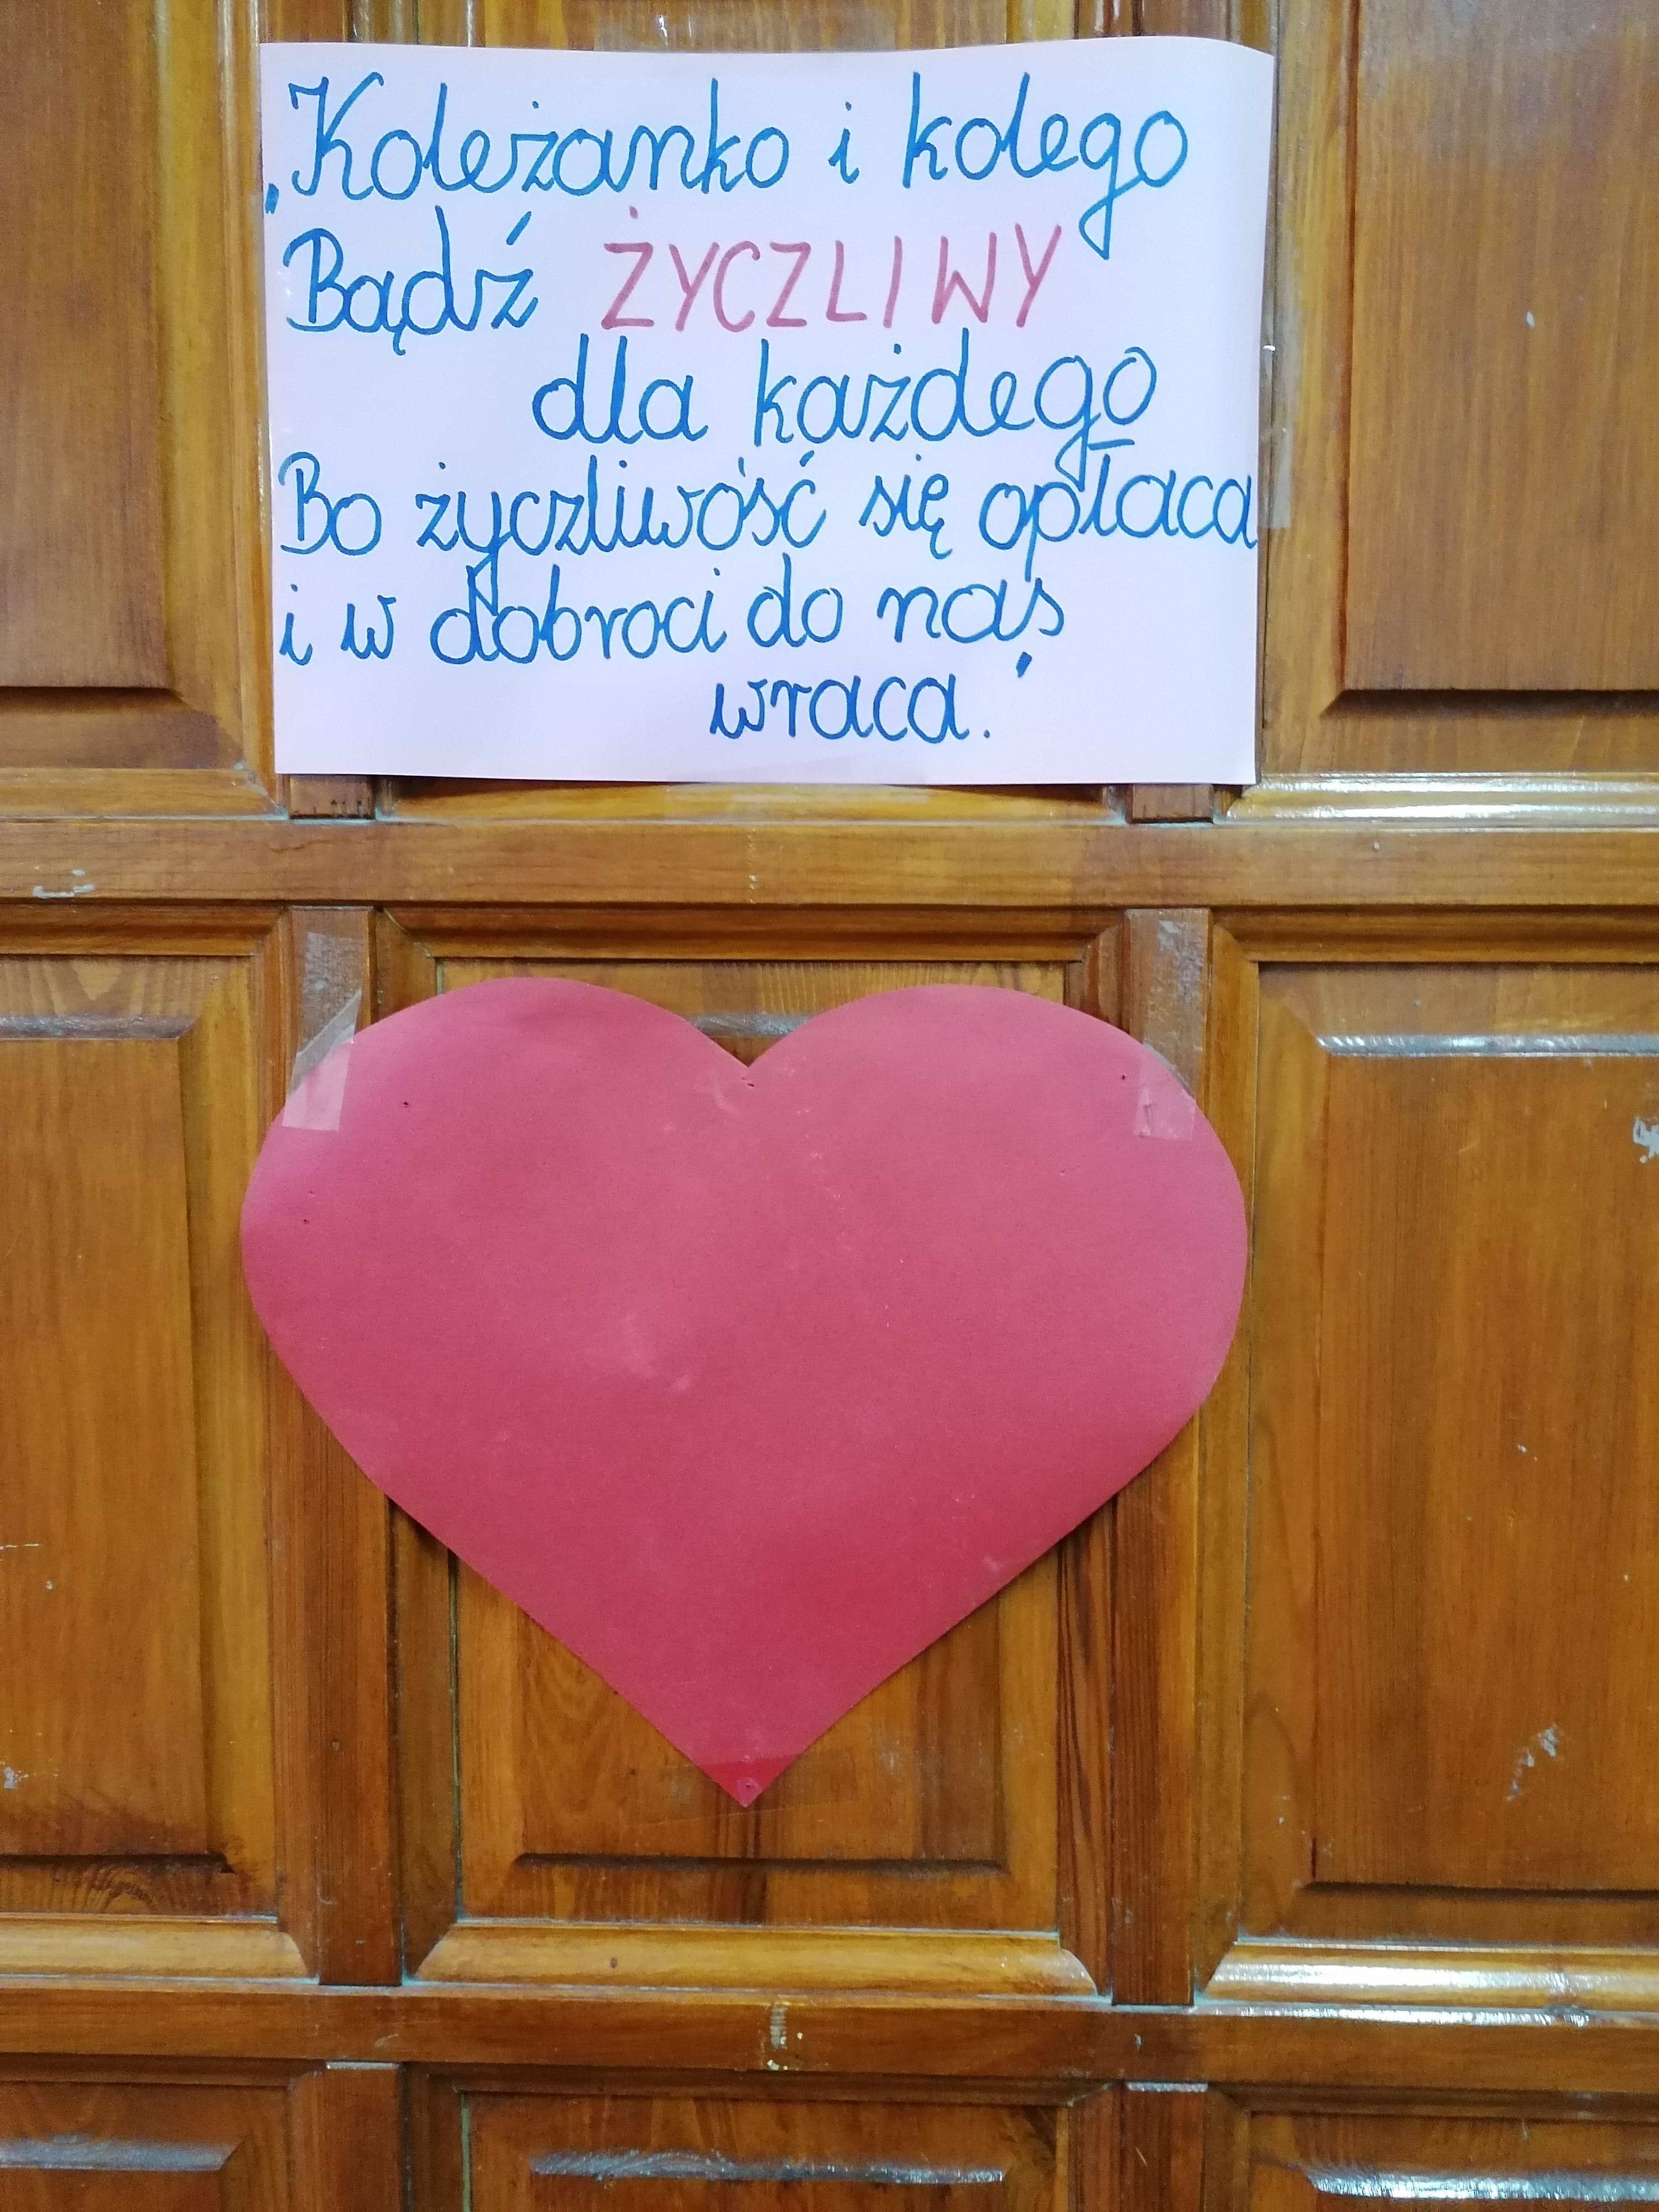 „Koleżanko i kolego
Bądź ŻYCZLIWY
dla każdego
Bo życzliwość się opłaca
i w dobroci do nas
wraca."